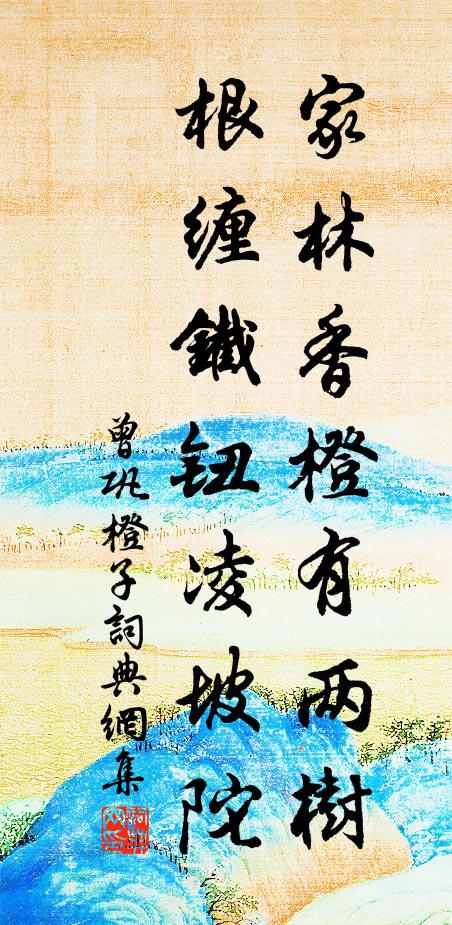 家林香橙有两樹
根纏鐵鈕凌坡陀
曾巩橙子詞典網集